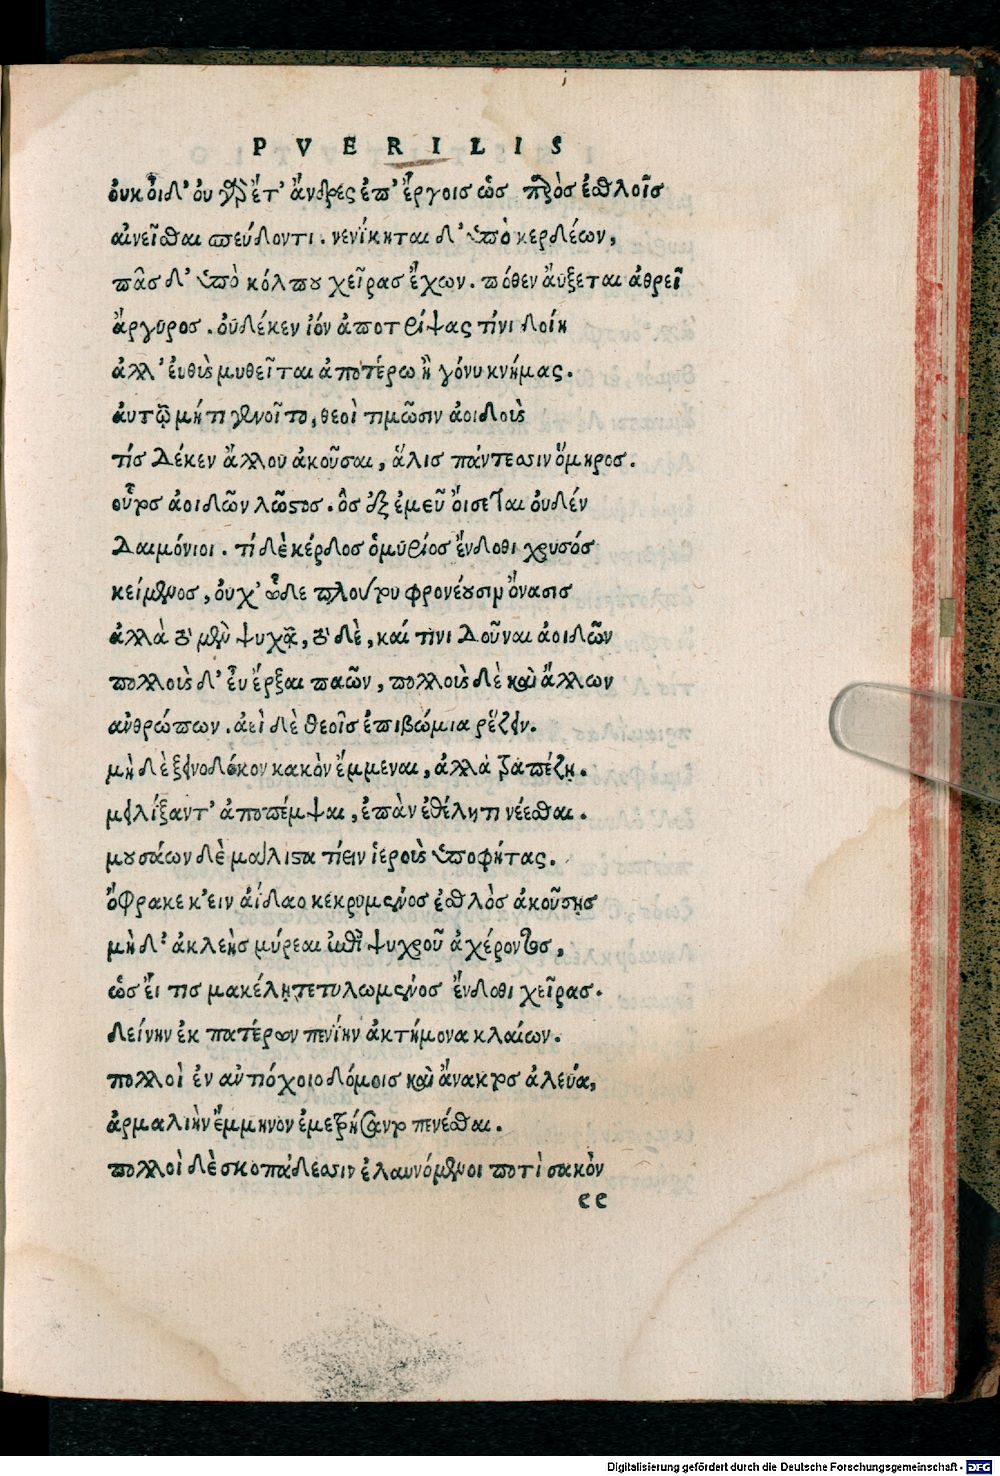 PVERILIS
ὀυκ ὄιδ' ὀυ γὰρ ἔτ' ἄνδρες ἐπ' ἔργοις ὡς πρὸς ἐσθλοῖς
ἀινεῖσθαι σπεύδοντι. νενίκηται δ' ὑπὸ κερδέων,
πᾶς δ' ὑπὸ κόλπου χεῖρας ἔχων. πόθεν ἄυξεται ἀθρεῖ
ἄργυρος. οὐδέκεν ἰόν ἀποτρίψας τίνι δοίη
ἀλλ' ἐυθὺς μυθεῖται ἀποτέρω ἢ γόνυ κνήμας.
ἀυτῷ μήτι γένοιτο, θεοὶ τιμῶσιν ἀοιδοὺς
τίς Δέκεν ἄλλου ἀκοῦσαι, ἅλις πάντεσσιν ὅμηρος.
οὗτος ἀοιδῶν λῶστος. ὃς ἐξ ἐμεῦ ὄισεται ὀυδέν
Δαιμόνιοι. τί δὲ κέρδος ὁμυρίος ἔνδοθι χρυσός
κείμενος, ὀυχ' ὧδε πλούτου φρονέουσιμ ὄνασις
ἀλλὰ τὸ μὲν ψυχᾷ, τὸ δὲ, καί τινι Δοῦναι ἀοιδῶν
πολλοὺς δ' ἐυ ἔρξαι παῶν, πολλοὺς δὲ καὶ ἄλλων
ἀνθρώπων. ἀεὶ δὲ θεοῖς ἐπιβώμια ρέζειν.
μὴ δὲ ξεινοδόκον κακὸν ἔμμεναι, ἀλλὰ τραπέζῃ.
μειλίξαντ' ἀποπέμψαι, ἐπὰν ἐθέλῃτι νέεσθαι.
μουσάων δὲ μάλιστα τίειν ἱεροὺς ὑποφήτας.
ὄφρακε κ' ειν ἀΐδαο κεκρυμμένος ἐσθλὸς ἀκούσῃς
μὴ δ' ἀκλεὴς μύρεαι ἐπὶ ψυχροῦ ἀχέροντος,
ὡς ἔι τις μακέλῃτετυλωμένος ἔνδοθι χεῖρας.
δείνην ἐκ πατέρων πενίην ἀκτήμονα κλαίων.
πολλοὶ ἐν ἀντιόχοιο δόμοις καὶ ἄνακτος ἀλεύα,
ἁρμαλιὴν ἔμμηνον ἐμετρήσαντο πενέσθαι.
πολλοὶ δὲ σκοπάδεσσιν ἐλαυνόμενοι ποτὶ σακὸν
ee
Digitalisierung gefördert durch die Deutsche Forschungsgemeinschaft - DFG